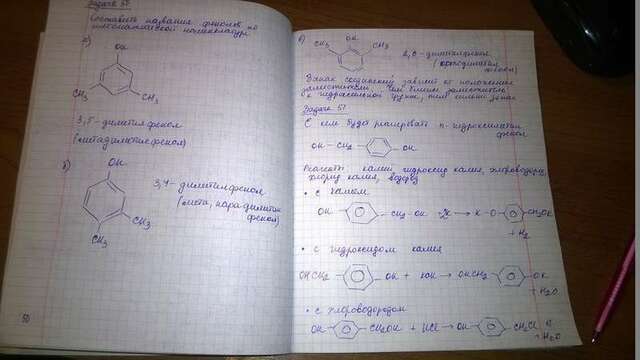 Задача 5
Составить названия фенолов по
номенклатуре
а)
OH
CH₃
CH₃
3,5-диметилфенол
(метадиметилфенол)
б)
OH
3,4-диметилфенол
(мета, пара-диметил
фенол)
CH₃
CH₃
50
в)
OH
CH₃
CH₃
2,6-диметилфенол
(ортодиметил
фенол)
Запах соединений зависит от положения
заместителей. Чем ближе заместитель
к гидроксильной группе, тем сильнее запах
Задача 51
С кем будет реагировать п-гидроксиметил
фенол
OH-CH₂
OH
Реагенты: калий, гидроксид калия, хлороводород,
хлорид калия, водород
• с калием
OH
CH₂-OH
K
K-O
CH₂OK
+ H₂
• с гидроксидом калия
OHCH₂
OH + KOH → OHCH₂
OK
+ H₂O
• с хлороводородом
OH
CH₂OH + HCl → OH
CH₂Cl
+ H₂O